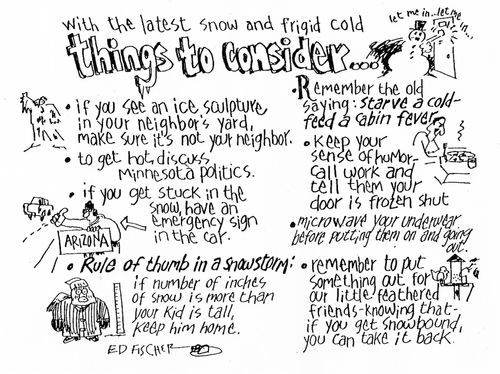 with the latest snow and frigid cold
things to consider...
let me in..let me in...
• if you see an ice sculpture
in your neighbor's yard,
make sure it's not your neighbor.
• to get hot, discuss
Minnesota politics.
• if you get stuck in the
snow, have an
emergency sign
in the car.
ARIZONA
• Rule of thumb in a snowstorm:
if number of inches
of snow is more than
your kid is tall,
keep him home.
ED FISCHER
• Remember the old
saying: starve a cold-
feed a cabin fever
• Keep your
sense of humor-
call work and
tell them your
door is frozen shut
• microwave your underwear
before putting them on and going
out.
• remember to put
something out for
our little feathered
friends-knowing that-
if you get snowbound,
you can take it back.